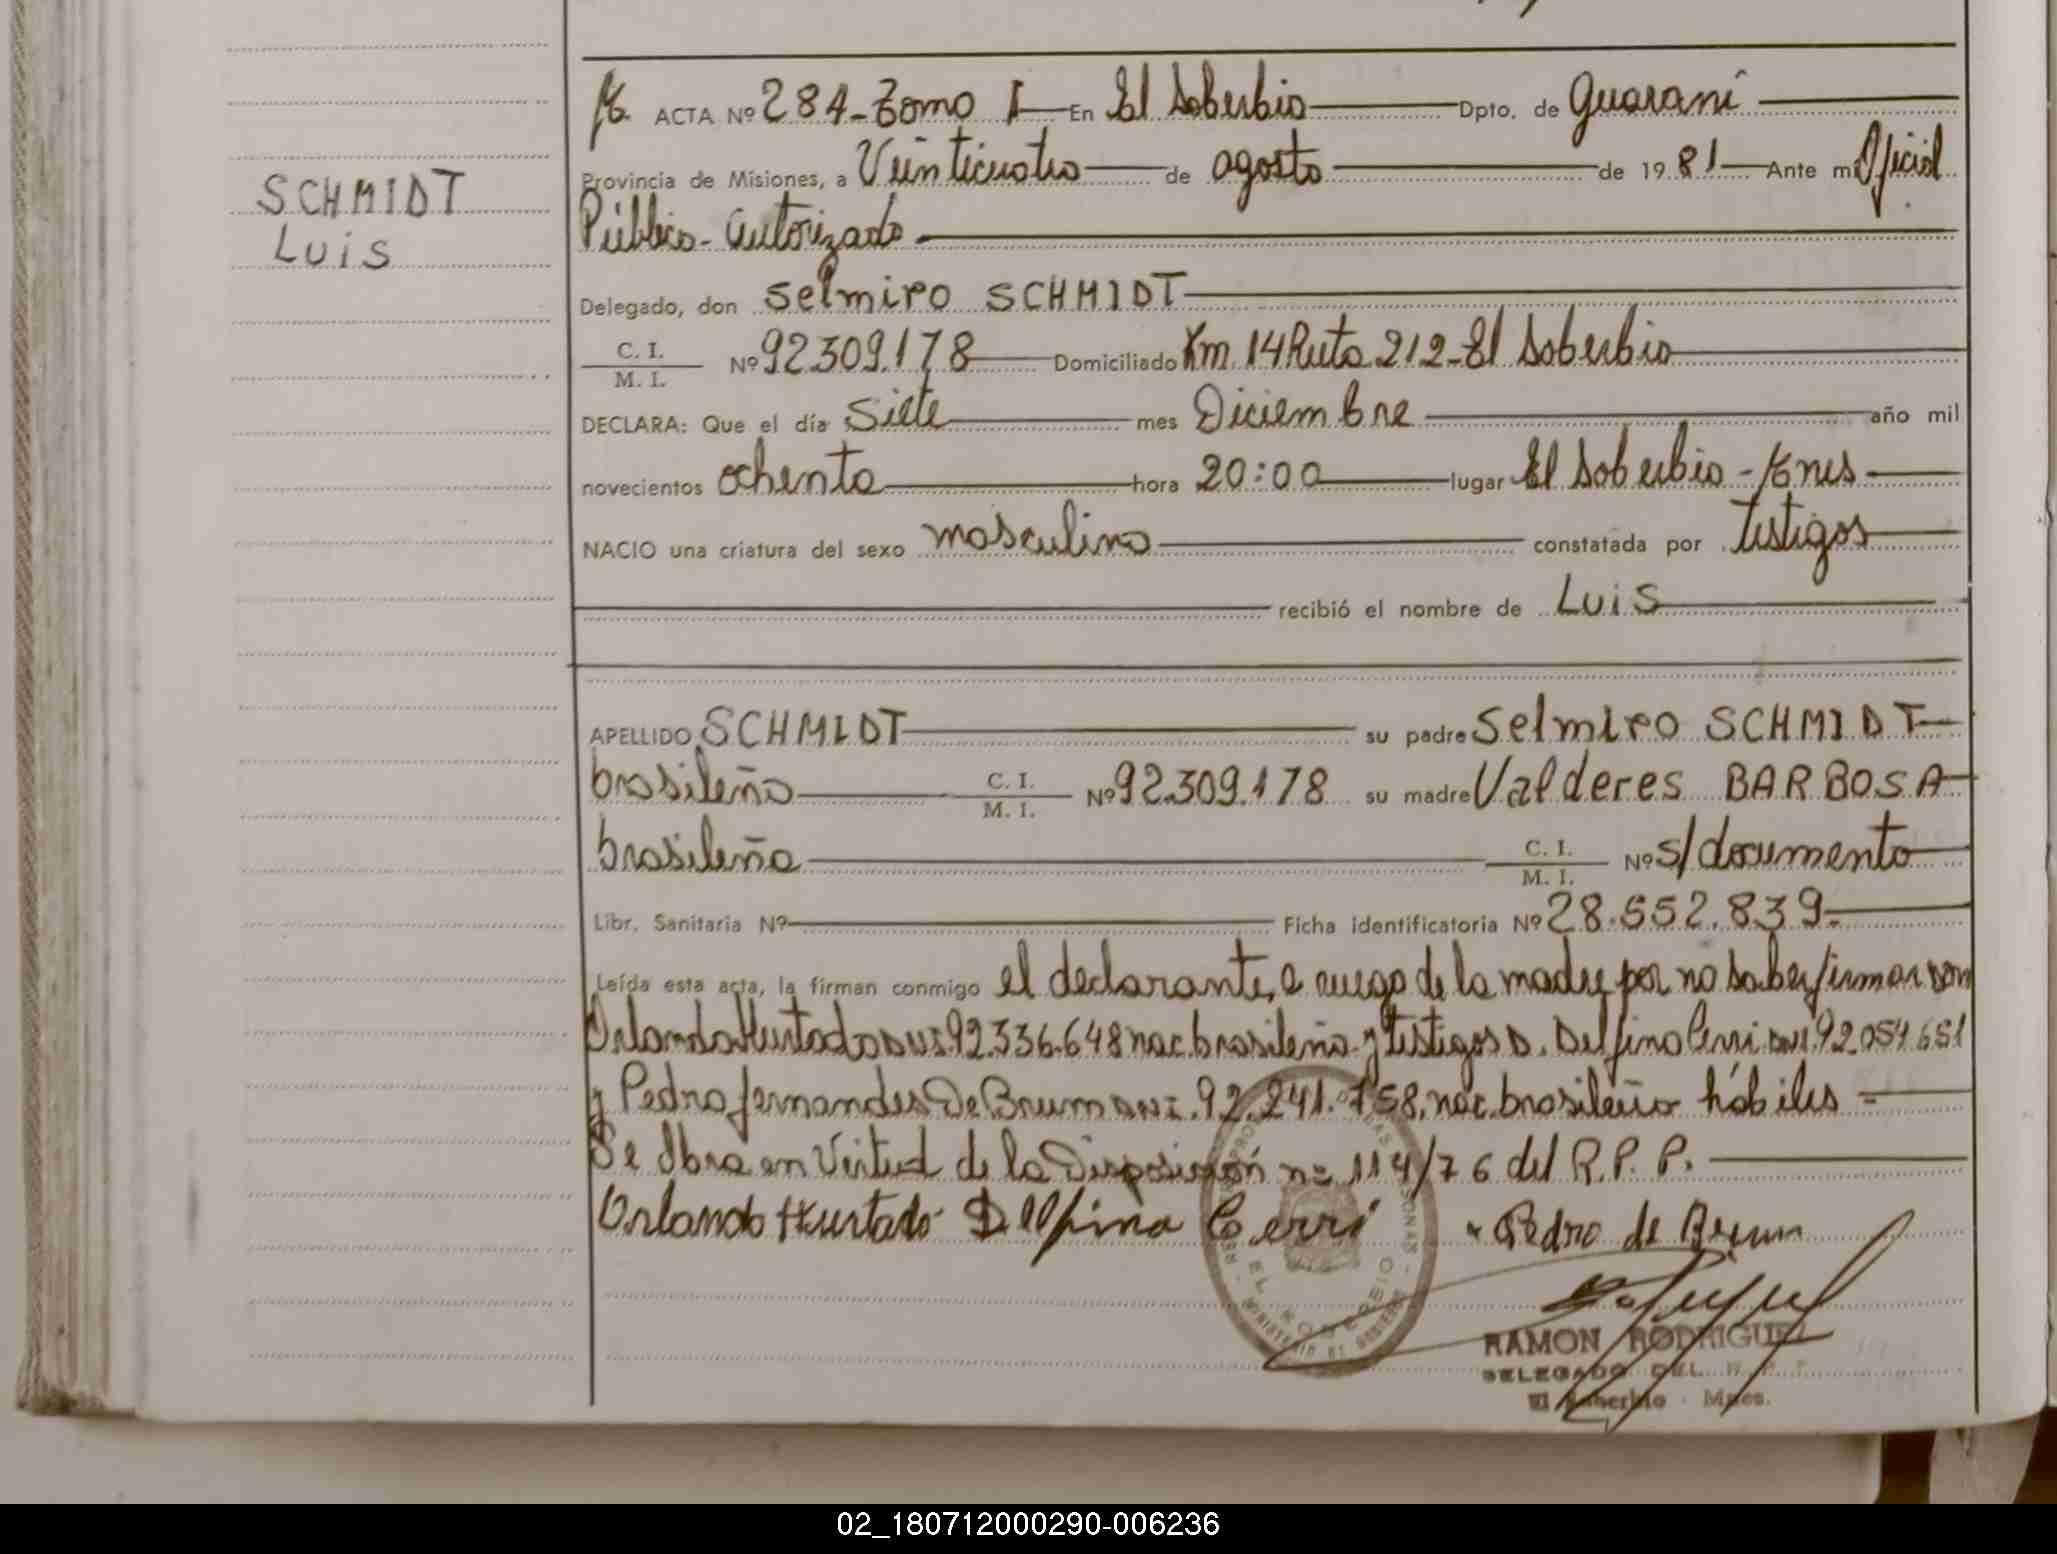 SCHMIDT
Luis
ACTA Nº 284 - Tomo I En El Soberbio Dpto. de Guaraní
Provincia de Misiones, a Veinticuatro de agosto de 1981 Ante mí Oficial
Público - Autorizado
Delegado, don Selmiro SCHMIDT
C. I. / M. I. Nº 92.309.178 Domiciliado Km 14 Ruta 212 - El Soberbio
DECLARA: Que el día Siete mes Diciembre año mil
novecientos ochenta hora 20:00 lugar El Soberbio - Mnes
NACIO una criatura del sexo masculino constatada por testigos
recibió el nombre de Luis
APELLIDO SCHMIDT su padre Selmiro SCHMIDT
brasileño C. I. / M. I. Nº 92.309.178 su madre Valderes BARBOSA
brasileña C. I. / M. I. Nº s/documento
Libr. Sanitaria Nº Ficha identificatoria Nº 28.552.839.
Leída esta acta, la firman conmigo el declarante, a ruego de la madre por no saber firmar don
Orlando Hurtado DNI. 92.336.648 nac. brasileña y testigos D. Delfino Cerri DNI. 92.054.651
y Pedro Fernandes De Brum DNI. 92.241.758. nac. brasileña hábiles
Se Obra en Virtud de la Disposición nº 114/76 del R. P. P.
Orlando Hurtado Delfino Cerri Pedro de Brum
EL SOBERBIO
RAMON RODRIGUEZ
DELEGADO DEL R. P. P.
El Soberbio - Mnes.
02_180712000290-006236